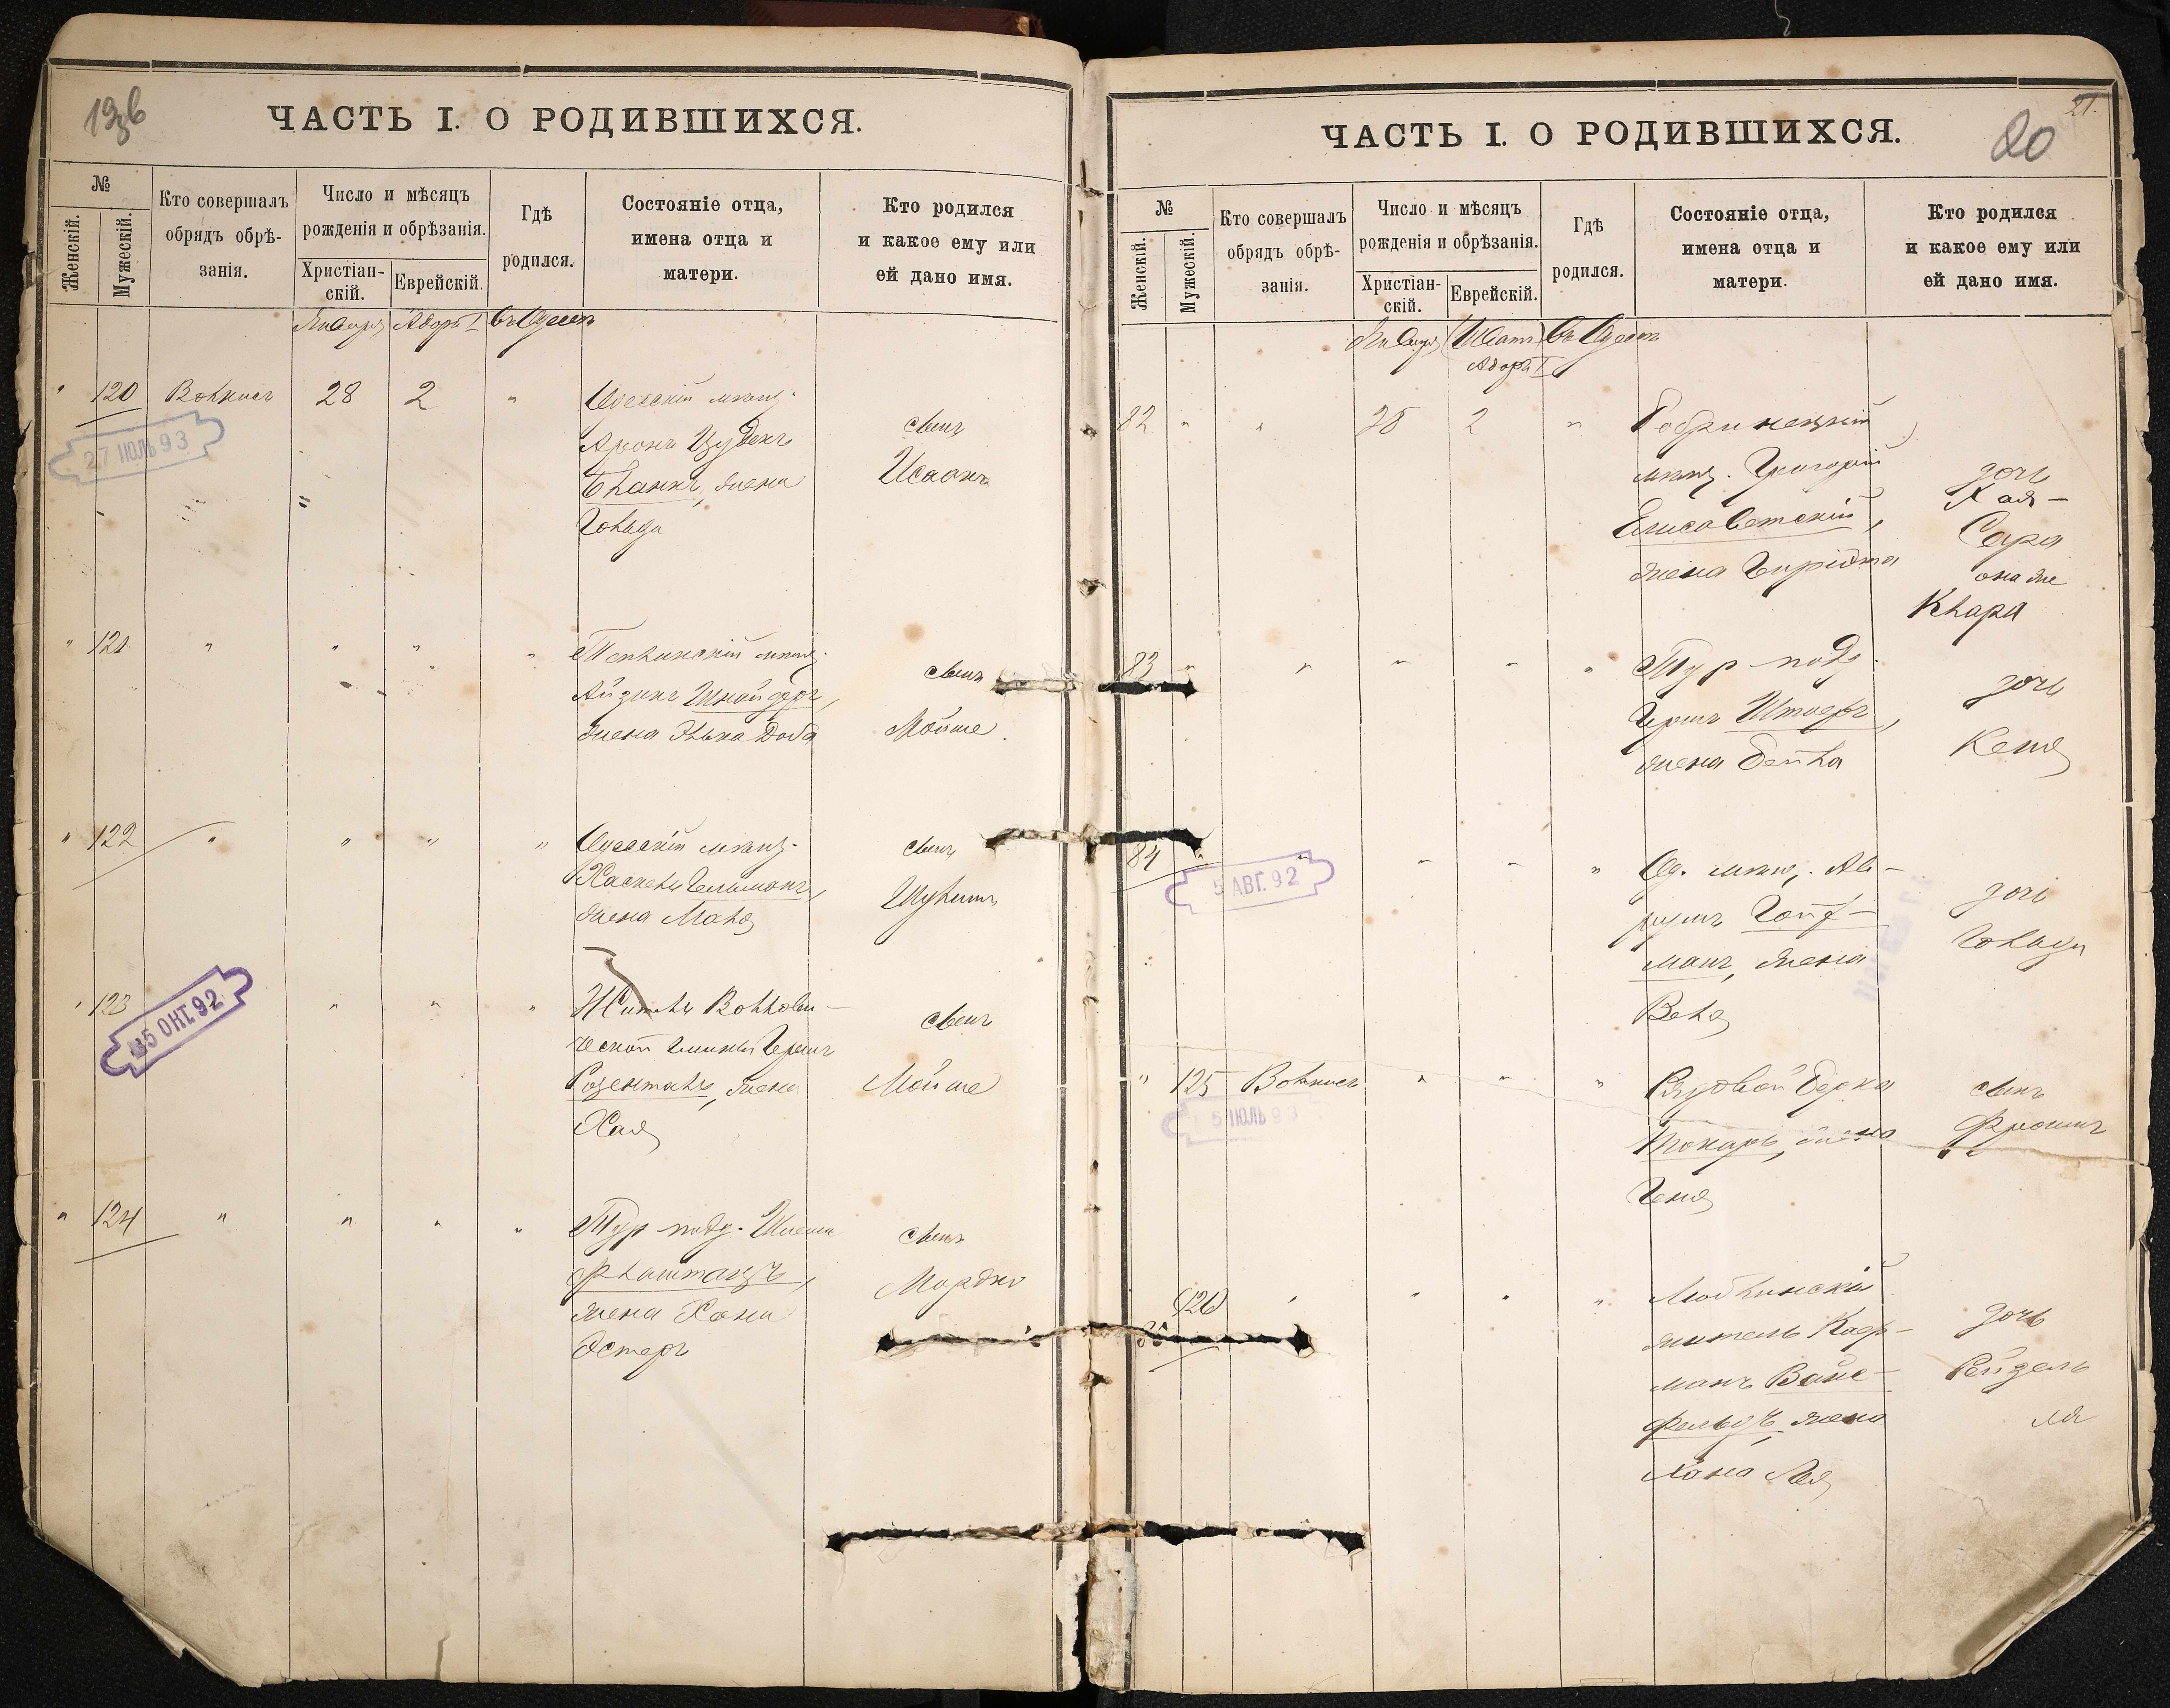 19об
ЧАСТЬ I. О РОДИВШИХСЯ.
№
Женскій.
Мужескій.
Кто совершалъ
обрядъ обрѣ-
занія.
Число и мѣсяцъ
рожденія и обрѣзанія.
Христіан-
скій.
Еврейскій.
Гдѣ
родился.
Состояніе отца,
имена отца и
матери.
Кто родился
и какое ему или
ей дано имя.
Января Адоръ I въ Одессѣ
" 120 28 2 "
Одесскій мѣщ.
Аронъ
Бланкъ, жена
Гольда
сынъ
Исаакъ
27 ІЮЛЬ 93
" 121 " " " "
мѣщ.
Айзикъ
жена Элька Доба
сынъ
Мойше
" 122 " " " "
Одесскій мѣщ.
Хаскель Гельманъ,
жена Маля
сынъ
Шулимъ
" 123 " " "
15 ОКТ. 92
Житель
Гершъ
Розенталь, жена
Хая
сынъ
Мойше
" 124 " " " "
Тур. подд.
Флаштанзъ,
жена Хона
Эстеръ
сынъ
Мордко
21.
20
ЧАСТЬ I. О РОДИВШИХСЯ.
№
Женскій.
Мужескій.
Кто совершалъ
обрядъ обрѣ-
занія.
Число и мѣсяцъ
рожденія и обрѣзанія.
Христіан-
скій.
Еврейскій.
Гдѣ
родился.
Состояніе отца,
имена отца и
матери.
Кто родился
и какое ему или
ей дано имя.
Января Шватъ въ Одессѣ
Адоръ I
82 " " 28 2 "
Бобринецкій
мѣщ. Григорій
Елисаветскій,
жена
дочь
Хая-
Сара
она же
Клара
83 " " " " "
Тур. подд.
Гершъ Штоеръ,
жена Бейла
дочь
Кеня
84 " " " " "
5 АВГ. 92
Од. мѣщ. Ав-
румъ Гойф-
манъ, жена
Веля
дочь
Гольда
" 125 " " "
5 ІЮЛЬ 93
Рядовой Берко
Токарь, жена
Геня
сынъ
Фроимъ
126 " " " "
85
Люблинскій
житель
манъ Вайс-
фельдъ, жена
Хана Лея
дочь
Рейзель